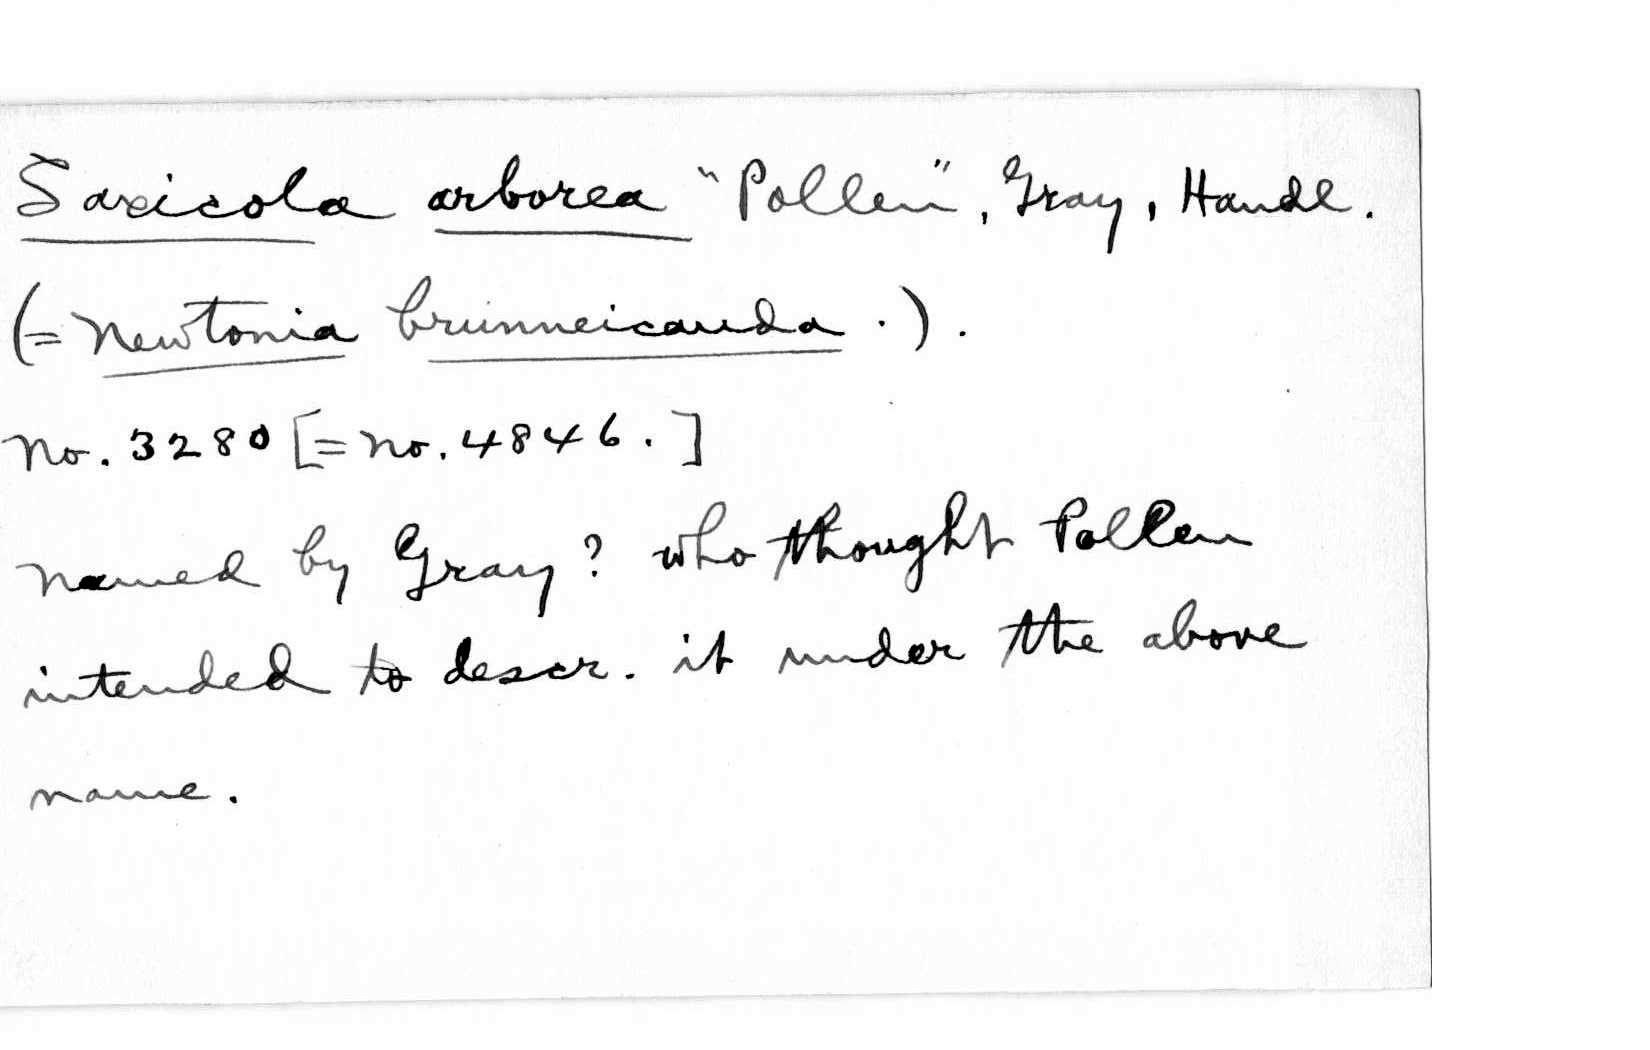 Saxicola arborea "Pollen", Gray, Handl.
(= Newtonia brunneicauda.).
No. 3280 [= No. 4846.]
Named by Gray? who thought Pollen
intended to descr. it under the above
name.